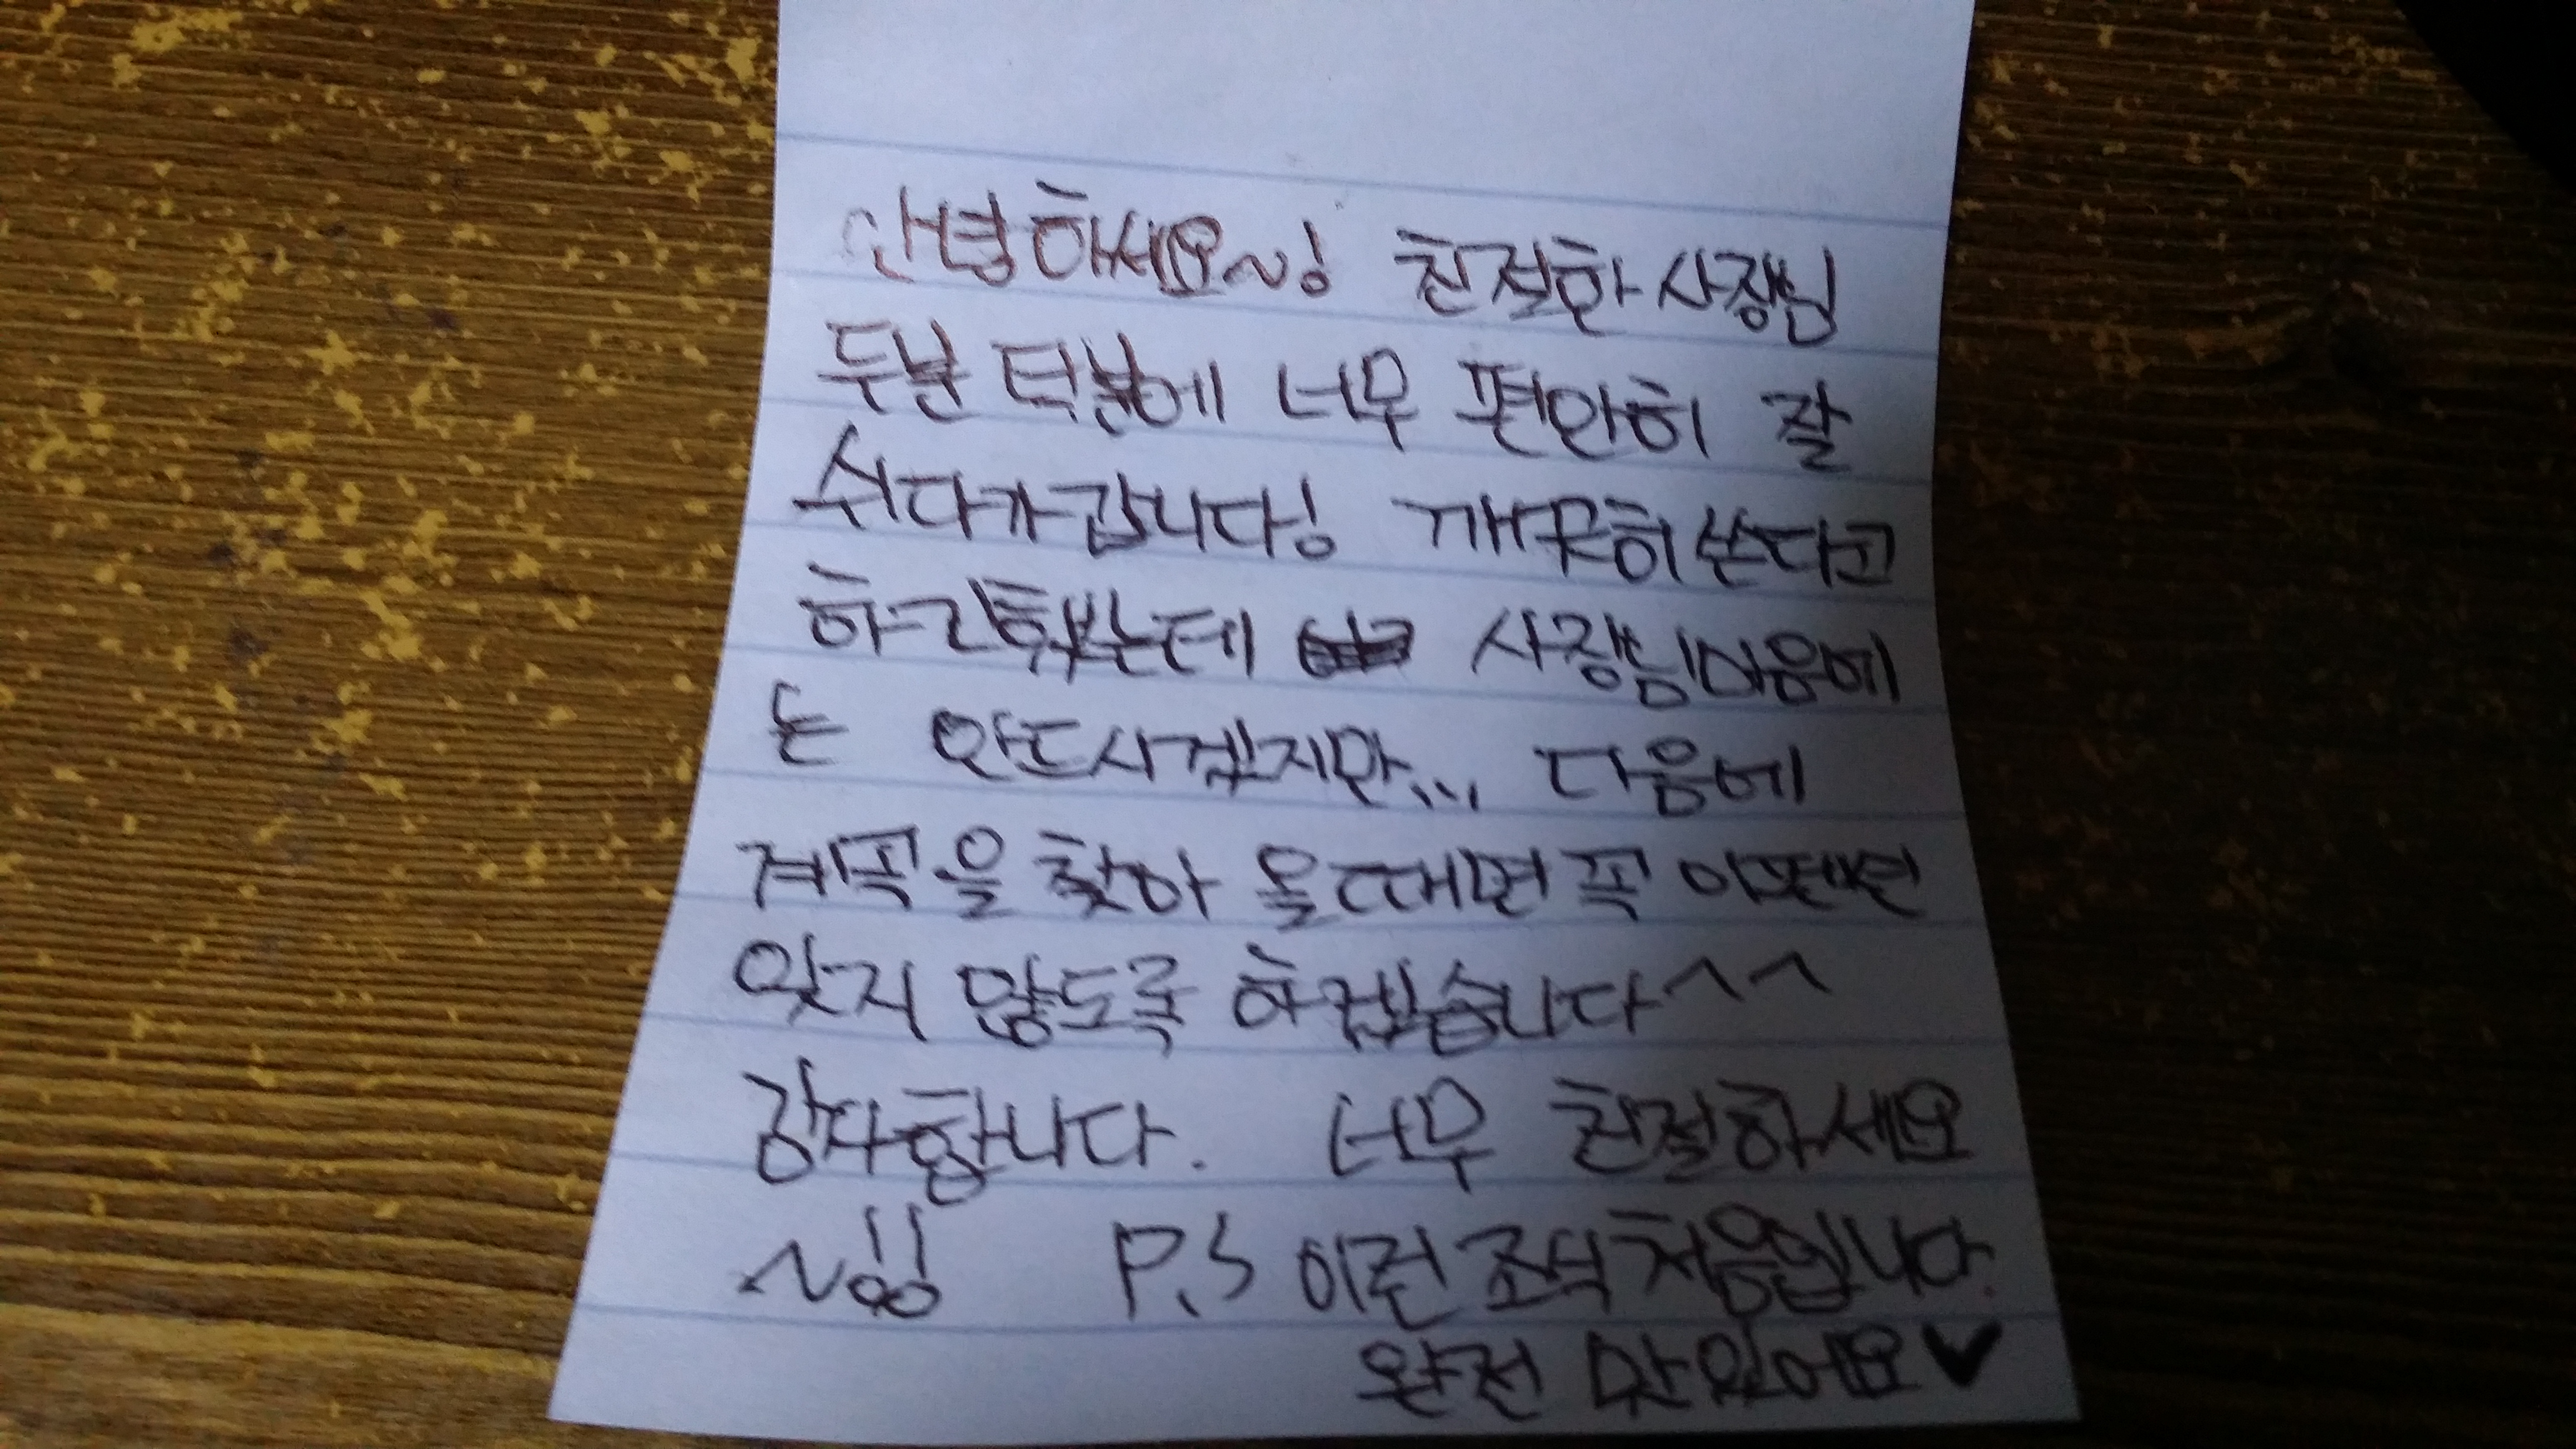 안녕하세요~! 친절한 사장님
두분 덕분에 너무 편안히 잘
쉬다가 갑니다! 깨끗히 쓴다고
하고 사장님 마음에
는 안드시겠지만... 다음에
계곡을 찾아 올때면 꼭 이펜션
잊지 않도록 하겠습니다^^
감사합니다. 너무 친절하세요
~!! P.S 이런 조식 처음입니다.
완전 맛있어요♥